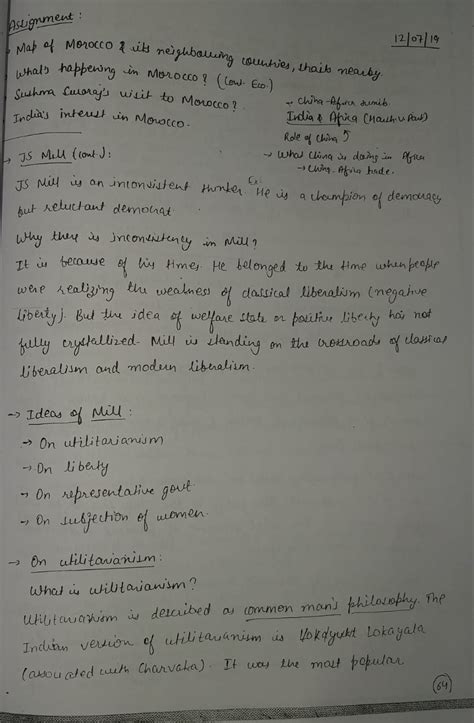 Assignment :
12/07/19
Map of Morocco & its neighbouring countries, straits nearby.
What's happening in Morocco? (Cont. Eco.)
Sushma Swaraj's visit to Morocco?
→ China-Africa summit
India's interest in Morocco.
India & Africa (Harsh v Pant)
Role of China
→ What China is doing in Africa
→ China-Africa trade.
→ JS Mill (cont.) :
JS Mill is an inconsistent thinker. He is a champion of democracy
but reluctant democrat
Why there is inconsistency in Mill?
It is because of his times. He belonged to the time when people
were realizing the weakness of classical liberalism (negative
liberty). But the idea of welfare state or positive liberty has not
fully crystallized. Mill is standing on the crossroads of classical
liberalism and modern liberalism.
→ Ideas of Mill :
→ On utilitarianism
→ On liberty
→ On representative govt.
→ On subjection of women.
→ On utilitarianism :
What is utilitarianism?
Utilitarianism is described as common man's philosophy. The
Indian version of utilitarianism is Lokayata
(associated with Charvaka). It was the most popular
64